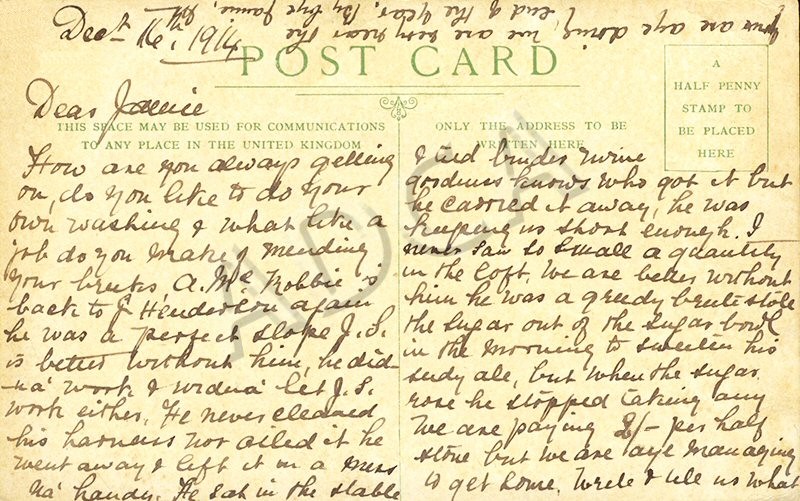 Dec 16th, 1914
your are aye doing, we are very near the
end of the year, Bye bye Jamie,
POST CARD
A
HALF PENNY
STAMP TO
BE PLACED
HERE
Dear Jamie
THIS SPACE MAY BE USED FOR COMMUNICATIONS
TO ANY PLACE IN THE UNITED KINGDOM
How are you always getting
on, do you like to do your
own washing & what like a
job do you make of mending
your breeks A. Mc Robbie is
back to J. Henderson again
he was a perfect slope J. S.
is better without him, he did-
na' work & widna' let J. S.
work either. He never cleaned
his harness nor oiled it he
went away & left it in a mess
na' handy. He sat in the stable
ONLY THE ADDRESS TO BE
WRITTEN HERE
& tied binder twine
goodness knows who got it but
he carried it away, he was
keeping us short enough. I
never saw so small a quantity
in the loft. We are better without
him he was a greedy brute stole
the sugar out of the sugar bowl
in the morning to sweeten his
sedy ale, but when the sugar
rose he stopped taking any
We are paying 2/- per half
stone but we are aye managing
to get home. Write & tell us what
ADCA